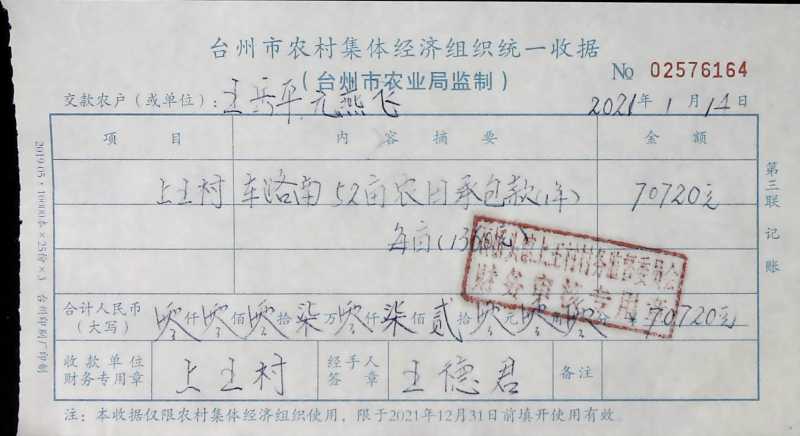 台州市农村集体经济组织统一收据
（台州市农业局监制）
No 02576164
交款农户（或单位）：王岳平 元燕飞 2021年1月14日
项目 内容摘要 金额
上王村 车洛南52亩农田承包款(年) 70720元
每亩(1360元)
合计人民币（大写） 零仟零佰零拾柒万零仟柒佰贰拾零元零角零分 70720元
上王村村务监督委员会
财务审核专用章
收款单位财务专用章 上王村 经手人签章 王德君 备注
注：本收据仅限农村集体经济组织使用，限于2021年12月31日前填开使用有效。
第三联 记账
2019.05·10000本×25份×3 台州印刷厂印制